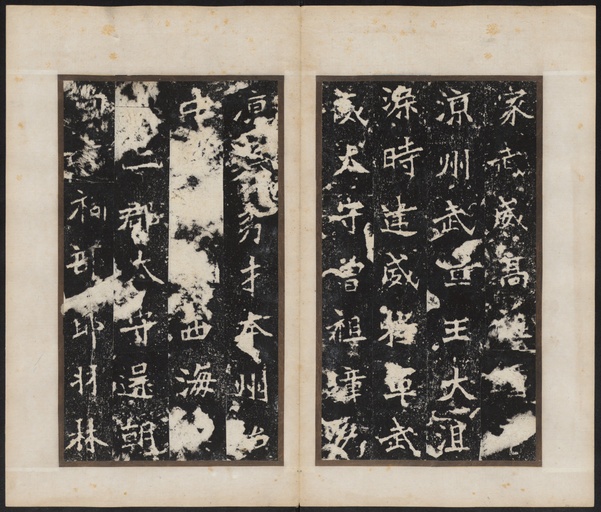 家武威高祖
涼州武宣王大沮
渠時建威將軍武
威太守曾祖璋
涼秀才本州治
中西海
二郡太守還朝
祠部郎羽林